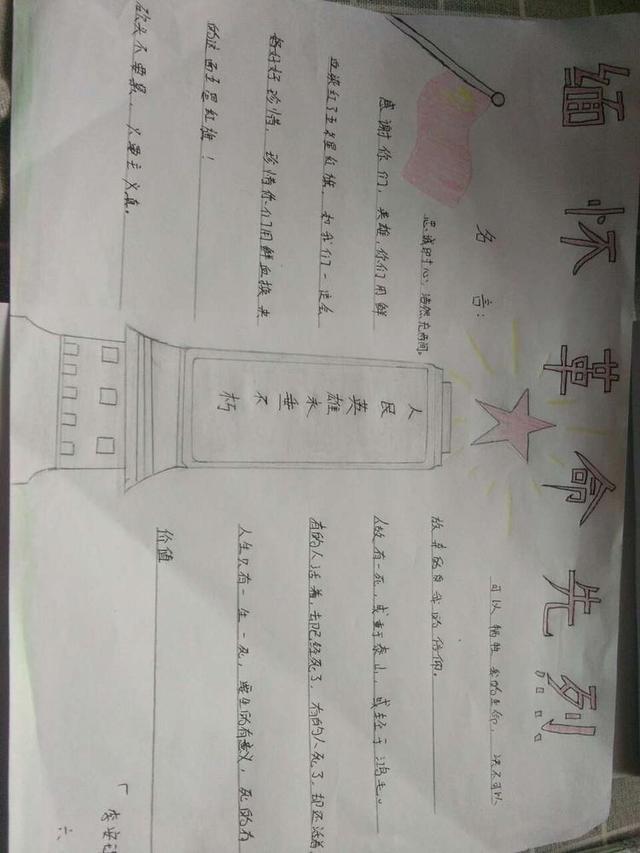 缅怀革命先烈
名言：
忠诚印寸心，浩然充两间。
感谢你们，英雄，你们用鲜
血染红了五星红旗，我们一定会
好好珍惜，珍惜你们用鲜血换来
的这面五星红旗！
砍头不要紧，只要主义真。
人民英雄永垂不朽
可以牺牲我的生命，决不可以
放弃的自我的信仰。
人故有一死，或重于泰山，或轻于鸿毛。
有的人活着，却已经死了，有的人死了，却还活着
人生只有一生一死，要生的有意义，死的有
价值
「李安
六